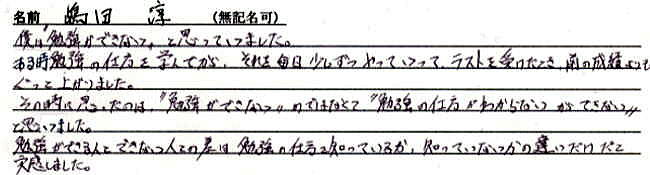 名前 嶋田 淳 (無記名可)
僕は"勉強ができない"と思っていました。
ある時勉強の仕方を学んでから、それを毎日少しずつやっていって、テストを受けたとき、前の成績よりも
ぐっと上がりました。
その時に思ったのは、"勉強ができない"のではなくて"勉強の仕方がわからないからできない"
と思いました。
勉強ができる人とできない人との差は勉強の仕方を知っているか、知っていないかの違いだけだと
実感しました。